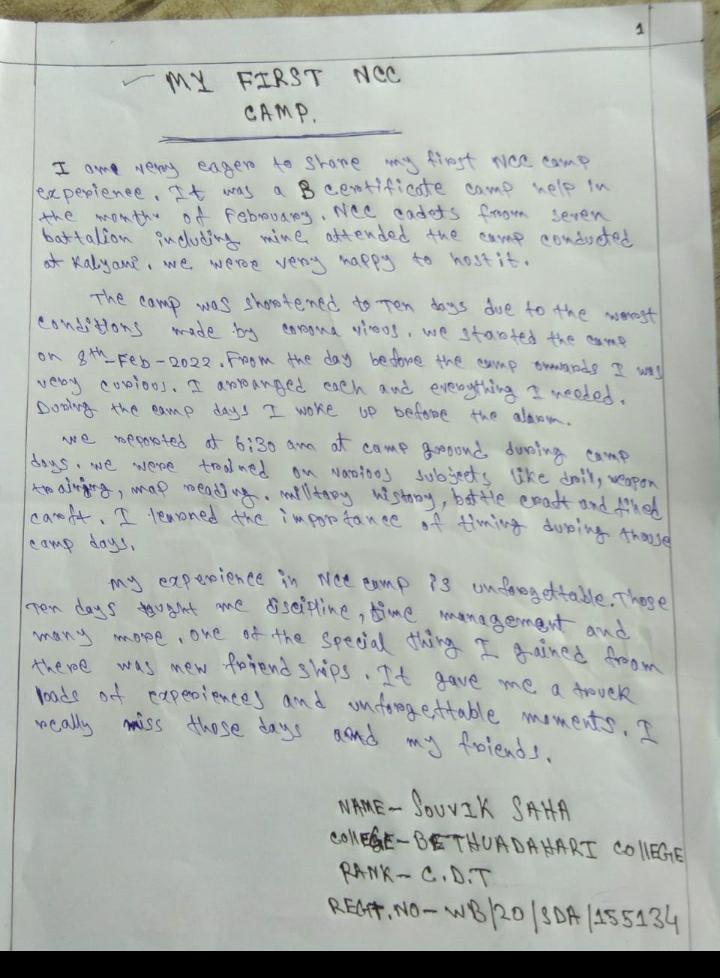 1
MY FIRST NCC
CAMP.
I am very eager to share my first NCC camp
experience. It was a B certificate camp help in
the month of February. NCC cadets from seven
battalion including mine attended the camp conducted
at Kalyani. we were very happy to host it.
The camp was shortened to Ten days due to the worst
conditions made by corona virous. we started the camp
on 8th-Feb-2022. From the day before the camp onwards I was
very curious. I arranged each and everything I needed.
During the camp days I woke up before the alarm.
we reported at 6:30 am at camp ground during camp
days. we were trained on various subjects like dril, weapon
training, map reading. military history, battle craft and filed
carft. I learned the importance of timing during those
camp days.
My experience in NCC camp is unforgettable. Those
Ten days tought me discipline, time management and
many more. one of the special thing I gained from
there was new friendships. It gave me a truck
loads of experiences and unforgettable moments. I
really miss those days and my friends.
NAME- SOUVIK SAHA
COllEGE-BETHUADAHARI COllEGE
RANK- C.D.T
REGT.NO-WB/20/SDA/155134